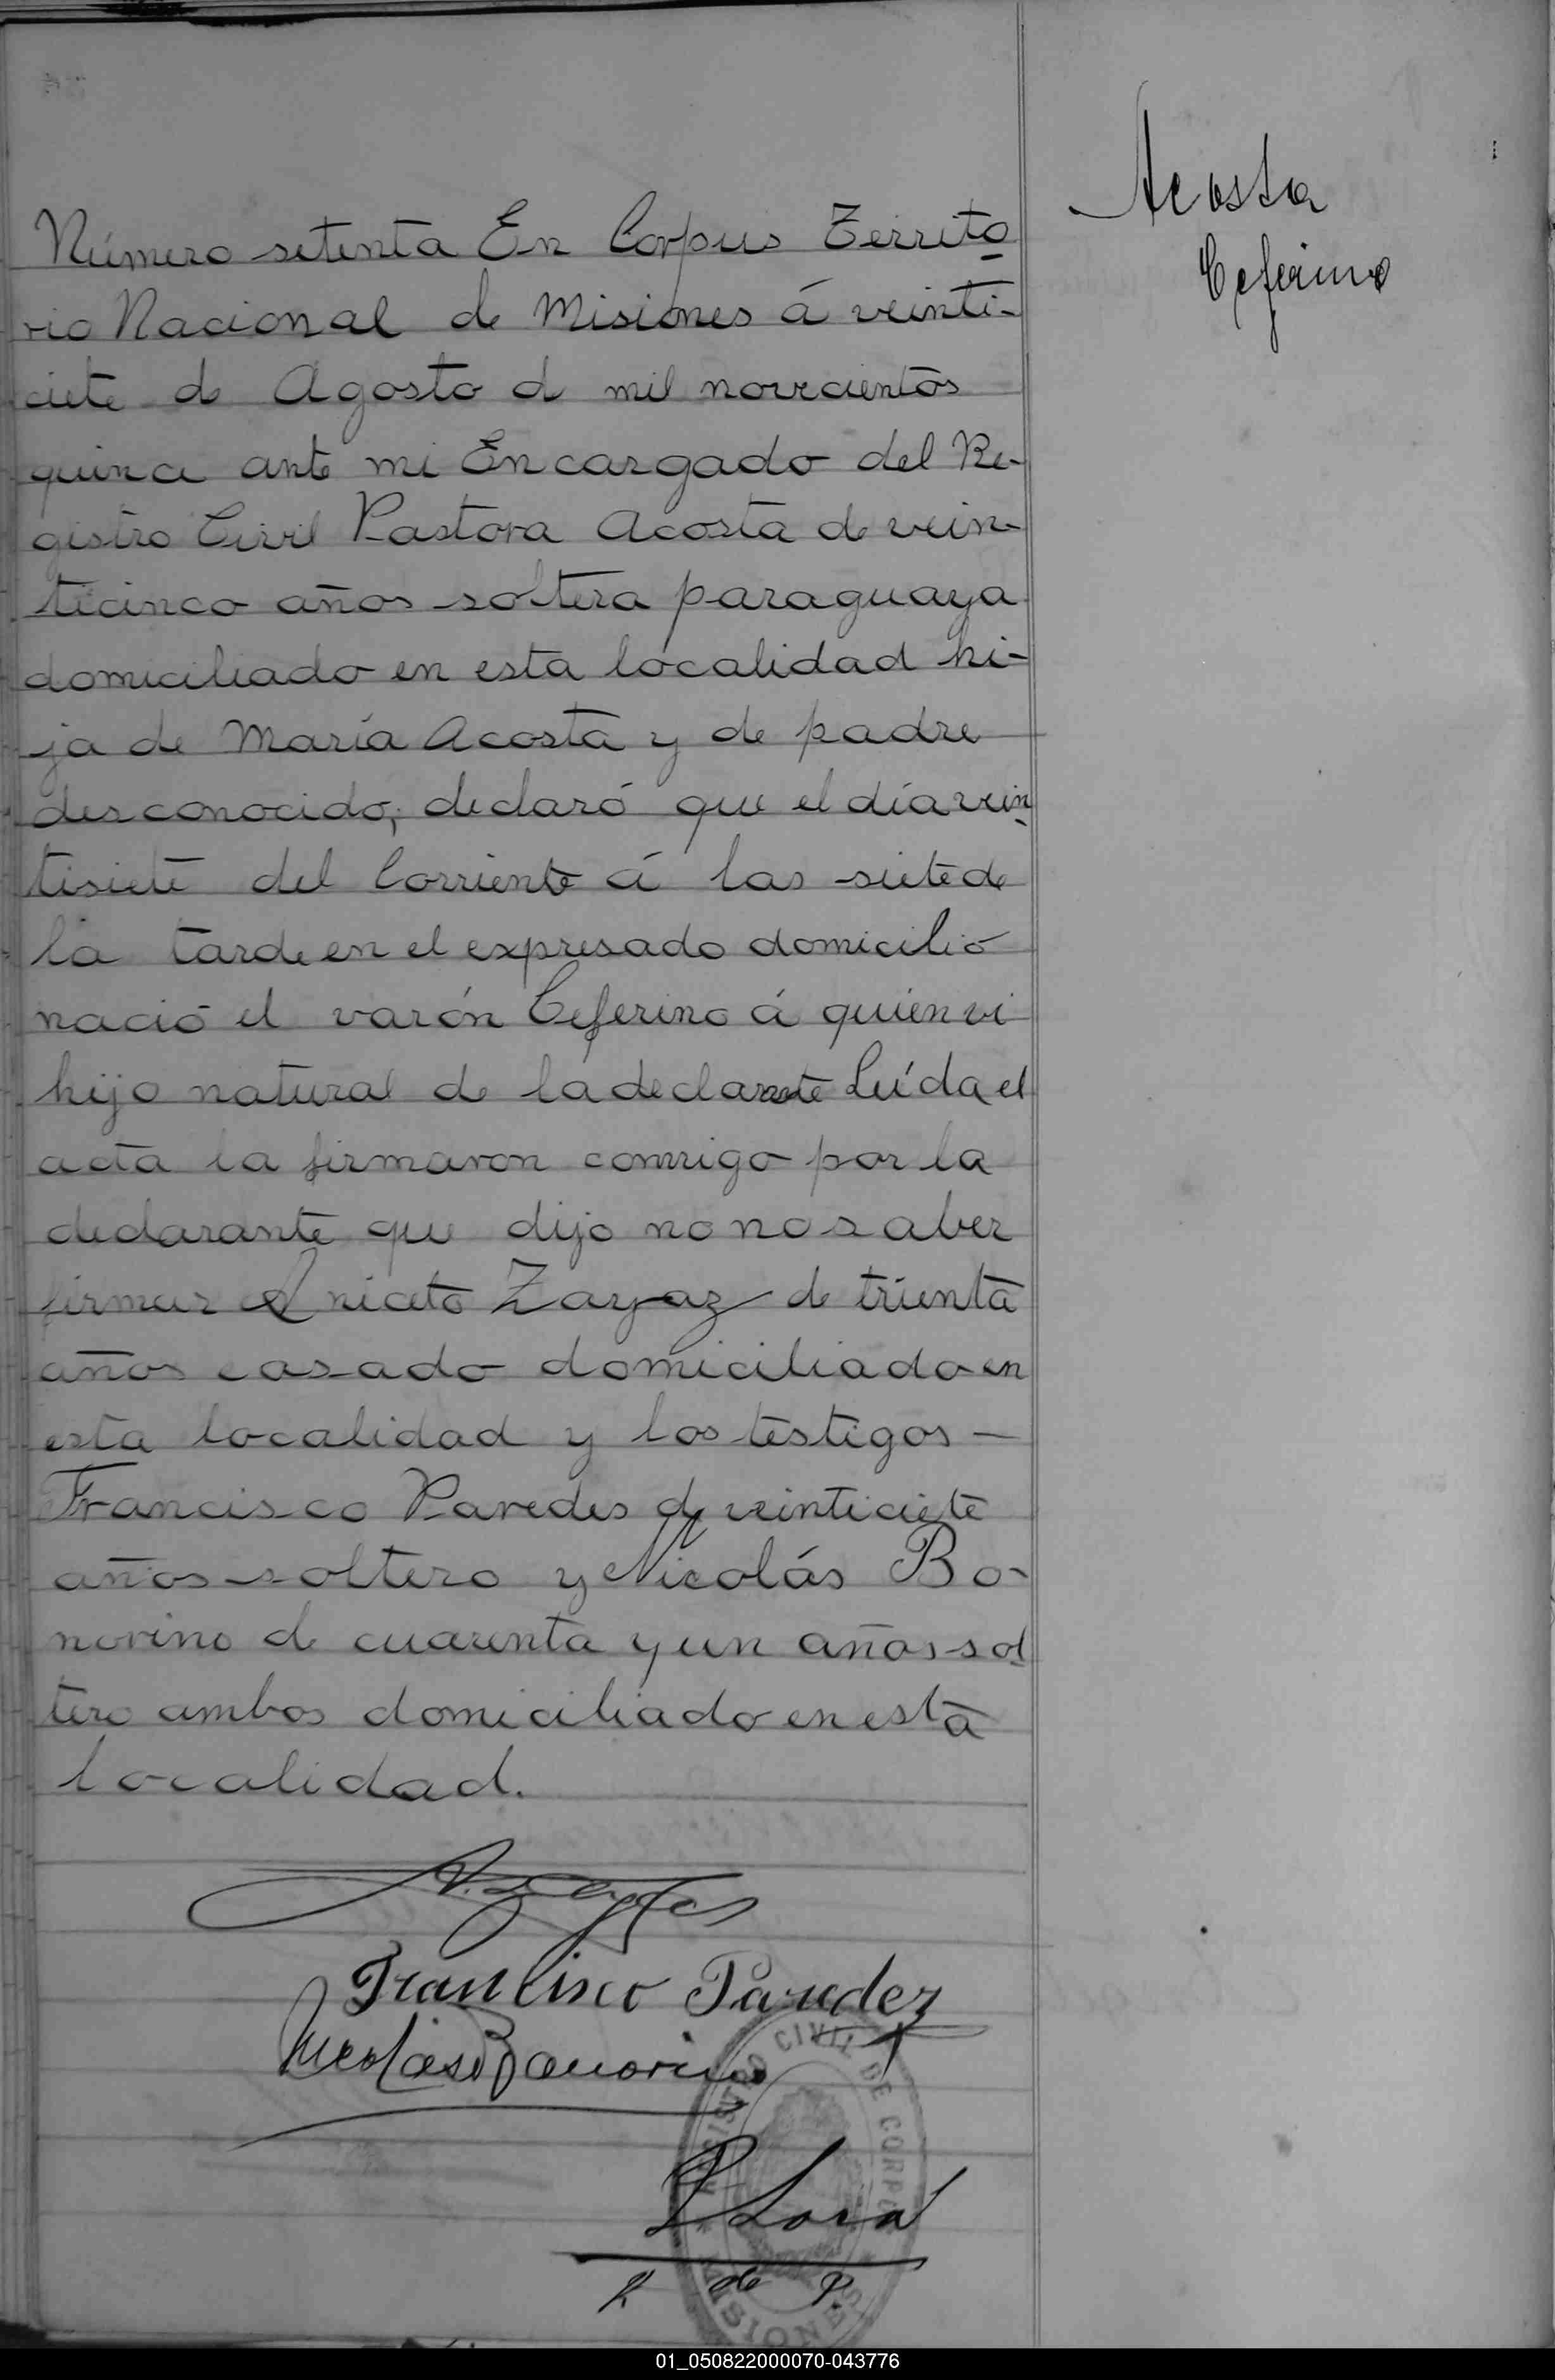 Acosta
Ceferino
Número setenta En Corpus Territo
rio Nacional de Misiones á veinti-
ciete de Agosto d mil novecientos
quince ante mi Encargado del Re-
gistro Civil Pastora Acosta de vein-
ticinco años soltera paraguaya
domiciliado en esta localidad hi-
ja de María Acosta y de padre
desconocido; declaró que el día vein
tisiete del Corriente á las siete de
la tarde en el expresado domicilio
nació el varón Ceferino á quien vi
hijo natural de la declarante Leída el
acta la firmaron conmigo por la
declarante que dijo no no saber
firmar Aniceto Zayaz de trienta
años casado domiciliado en
esta localidad y los testigos —
Francisco Paredes de veinticiete
años soltero y Nicolás Bo-
novino de cuarenta y un años sol
tero ambos domiciliado en esta
localidad.
Francisco Paredez
Nicolas Bonorino
REGISTRO CIVIL DE CORPUS
MISIONES
J de P.
01_050822000070-043776